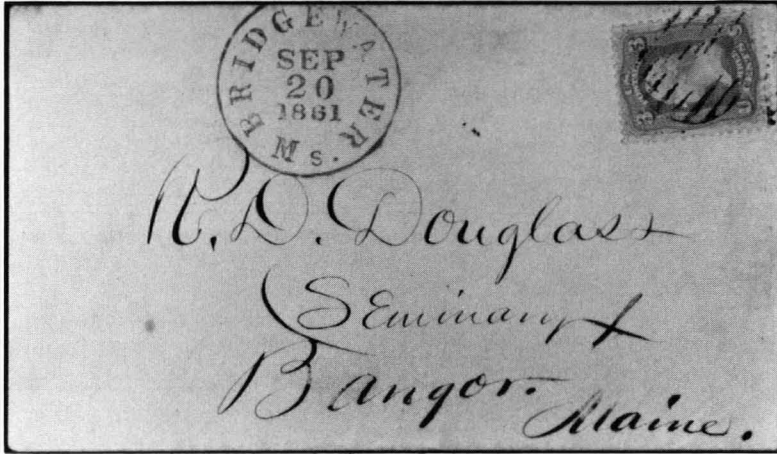 BRIDGEWATER Ms.
SEP
20
1861
R. D. Douglass
Seminary
Bangor.
Maine.